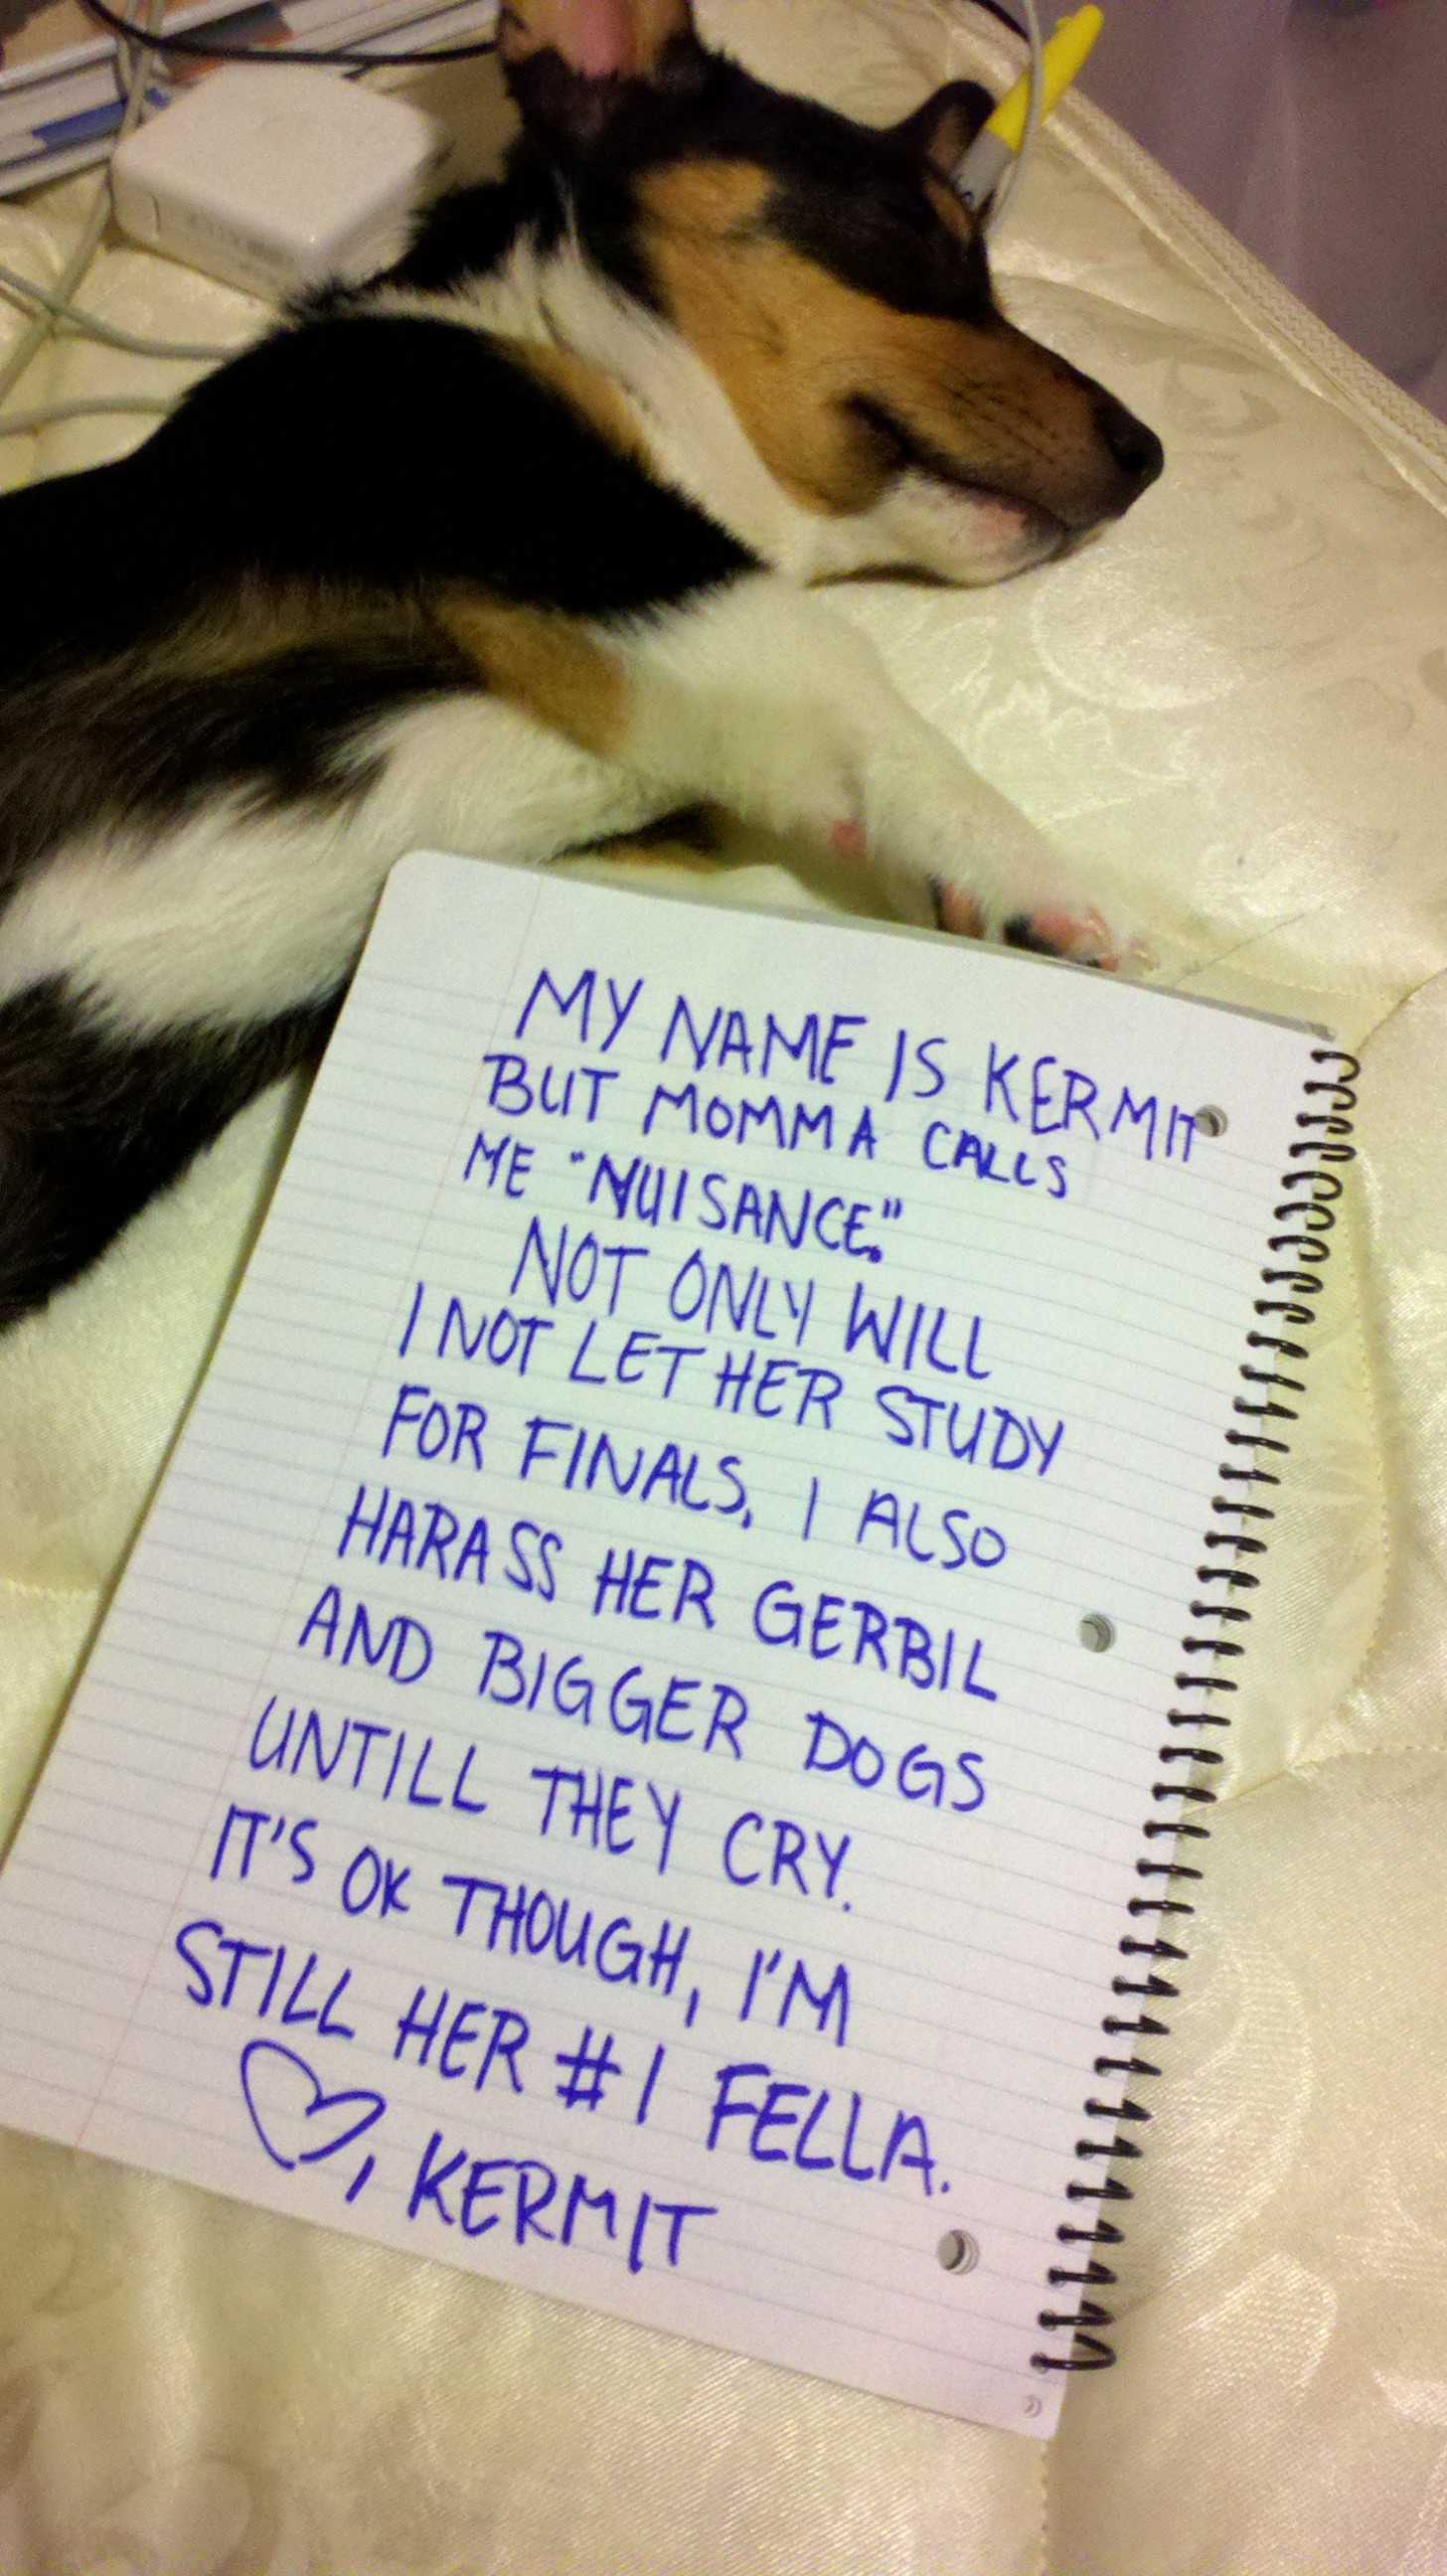 MY NAME IS KERMIT
BUT MOMMA CALLS
ME "NUISANCE."
NOT ONLY WILL
I NOT LET HER STUDY
FOR FINALS, I ALSO
HARASS HER GERBIL
AND BIGGER DOGS
UNTILL THEY CRY.
IT'S OK THOUGH, I'M
STILL HER #1 FELLA.
♡, KERMIT